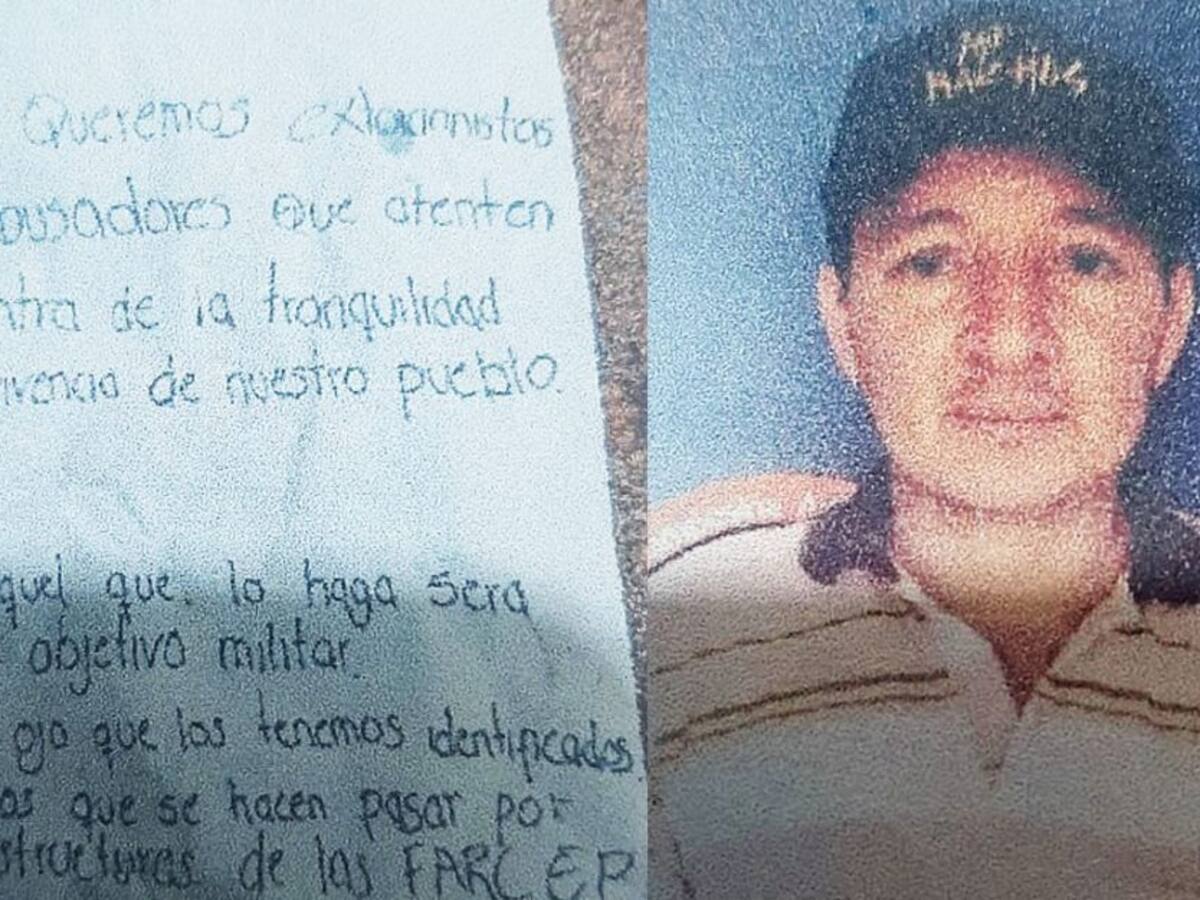 Queremos extorsionistas
ousadores que atenten
ntra de la tranquilidad
ivencia de nuestro pueblo.
quel que. lo haga sera
objetivo militar.
ojo que los tenemos identificados
os que se hacen pasar por
structuras de las FARC EP